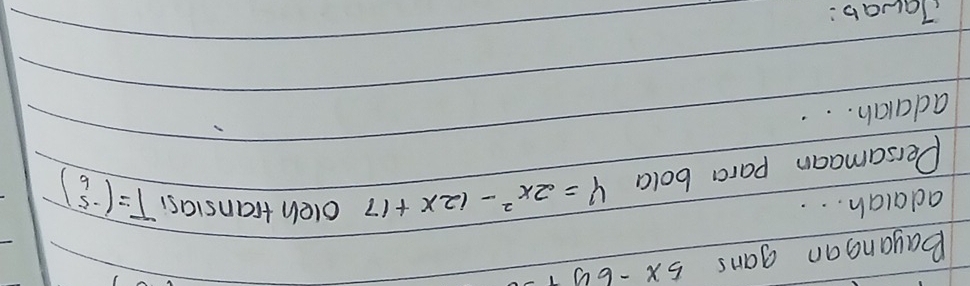 Bayangan garis 5x - 6y +
adalah...
Persamaan para bola y = 2x² - 12x + 17 oleh translasi T = (-5 6)
adalah...
Jawab: